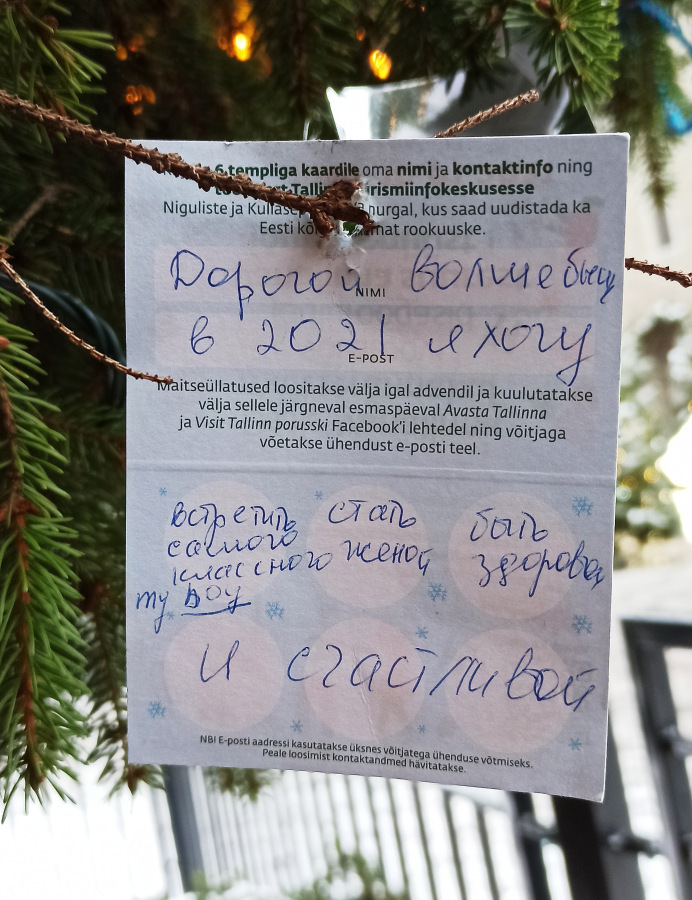 6 templiga kaardile oma nimi ja kontaktinfo ning
Niguliste ja nurgal, kus saad uudistada ka
Eesti rookuuske.
Дорогой волшебник
NIMI
в 2021 я хочу
E-POST
Maitseüllatused loositakse välja igal advendil ja kuulutatakse
välja sellele järgneval esmaspäeval Avasta Tallinna
ja Visit Tallinn porusski Facebook'i lehtedel ning võitjaga
võetakse ühendust e-posti teel.
встретить
самого
классного
my boy
стать
женой
быть
здоровой
и счастливой
NB! E-posti aadressi kasutatakse üksnes võitjatega ühenduse võtmiseks.
Peale loosimist kontaktandmed hävitatakse.